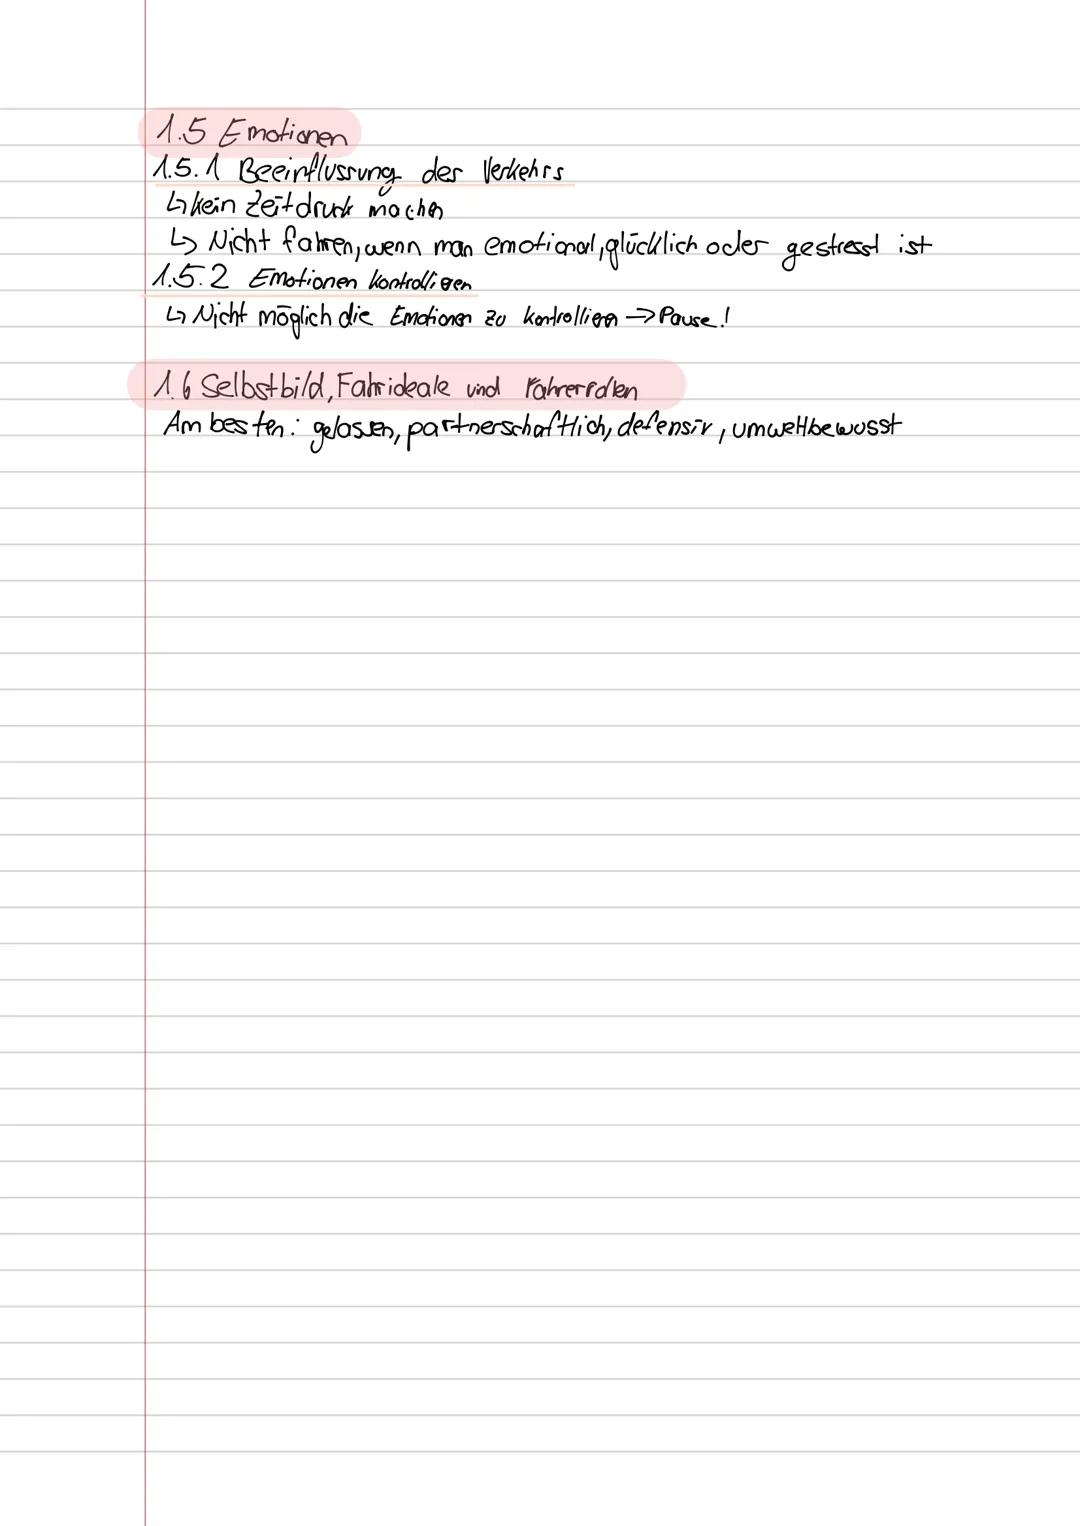 1.5 Emotionen
1.5.1 Beeinflussung des Verkehrs
↳ kein Zeitdruck machen
↳ Nicht fahren, wenn man emotional, glücklich oder gestresst ist
1.5.2 Emotionen kontrollieren
↳ Nicht möglich die Emotionen zu kontrollieren → Pause!
1.6 Selbstbild, Fahrideale und Fahrerrollen
Am besten: gelassen, partnerschaftlich, defensiv, umweltbewusst